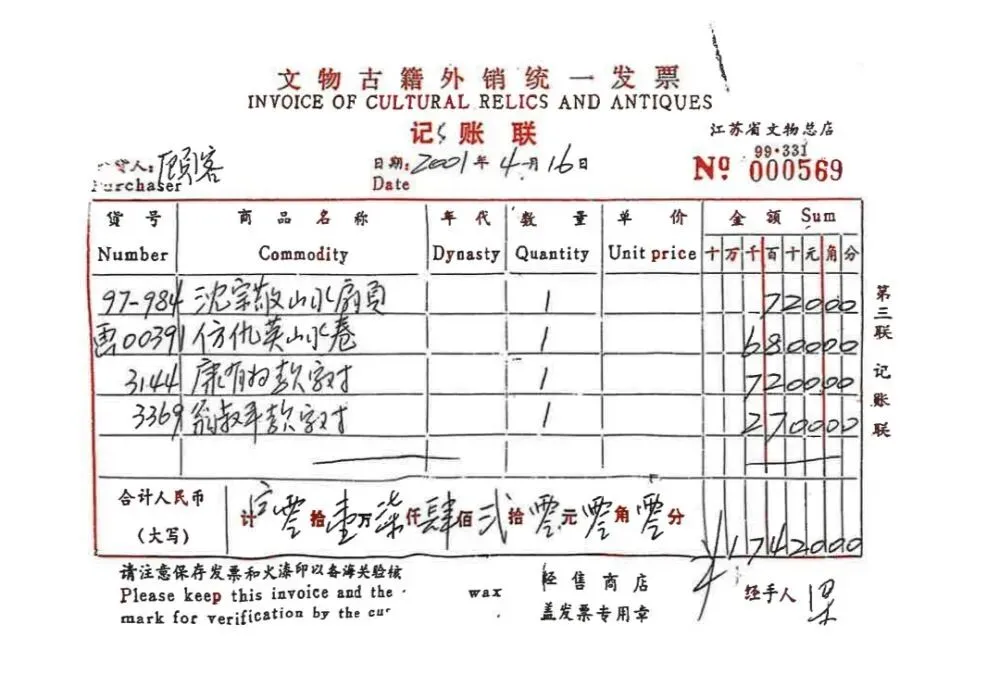 文物古籍外销统一发票
INVOICE OF CULTURAL RELICS AND ANTIQUES
记账联
江苏省文物总店
99·331
货人:顾客
Purchaser
日期:2001年4月16日
Date
Nº 000569
货号 商品名称 年代 数量 单价 金额 Sum
Number Commodity Dynasty Quantity Unit price 十万千百十元角分
97-984 沈宗敬山水扇页 1 72000
画00391 仿仇英山水卷 1 680000
3144 康有为款字对 1 720000
3369 翁叔平款字对 1 270000
合计人民币
(大写)
计零拾壹万柒仟肆佰贰拾零元零角零分
¥1742000
请注意保存发票和火漆印以备海关验核
Please keep this invoice and the wax
mark for verification by the cus
经售商店
盖发票专用章
经手人
第三联 记账联